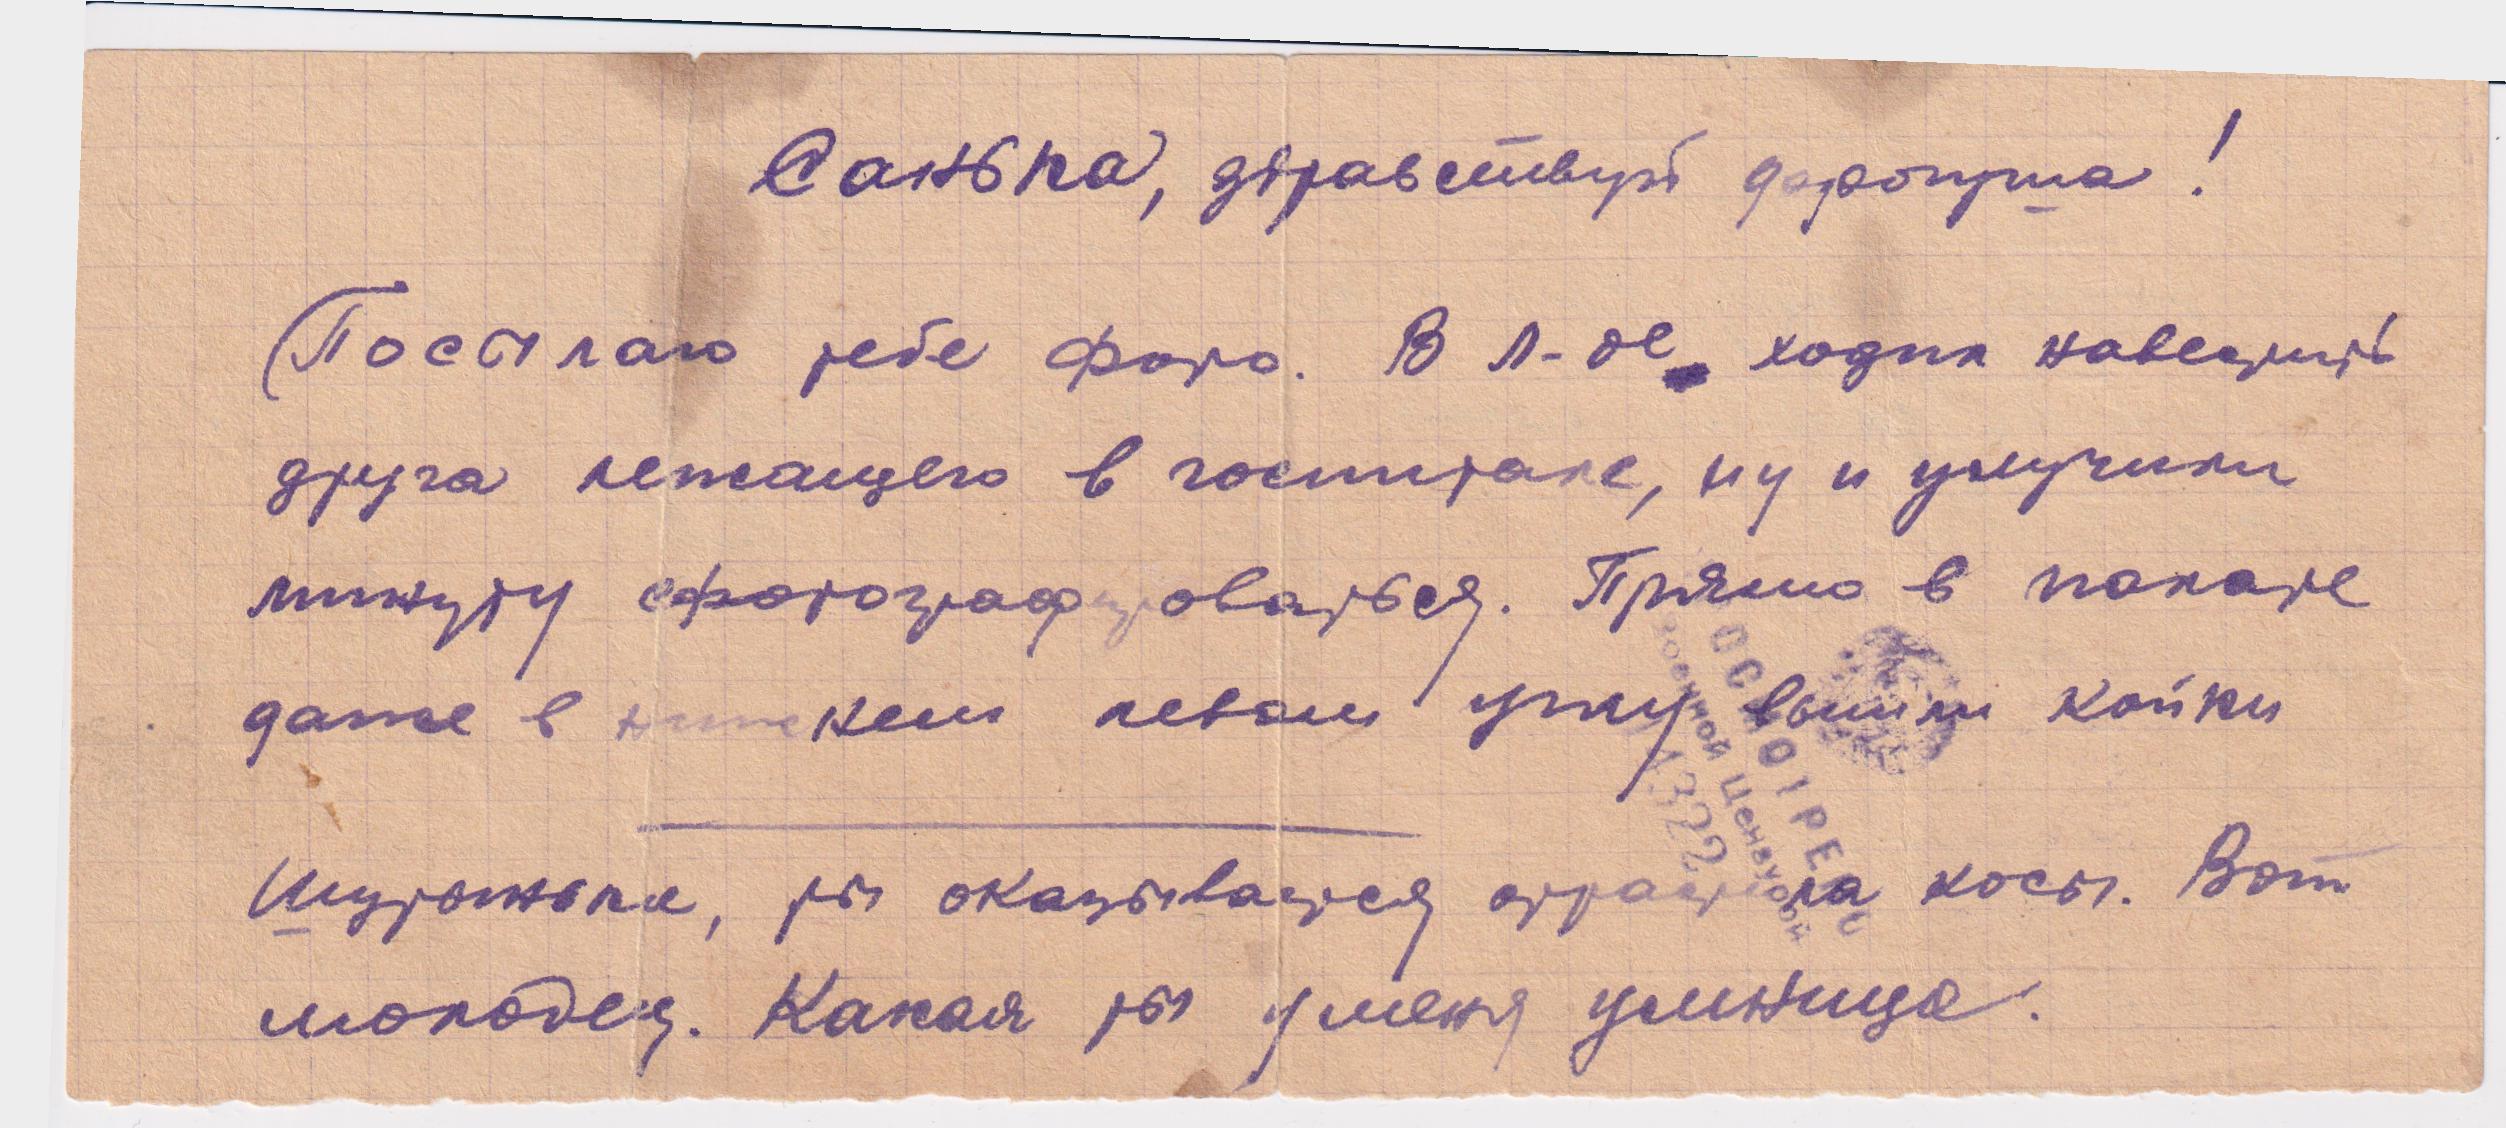 Санька, здравствуй дорогуша!
Посылаю тебе фото. В Л-де ходил навестить
друга лежащего в госпитале, ну и улучили
минуту сфотографироваться. Прямо в палате
даже в нижнем левом углу вышли койки
Шуронька, ты оказывается отрастила косы. Вот
молодец. Какая ты у меня умница.
ОСМОТРЕНО
Военной Цензурой
1322